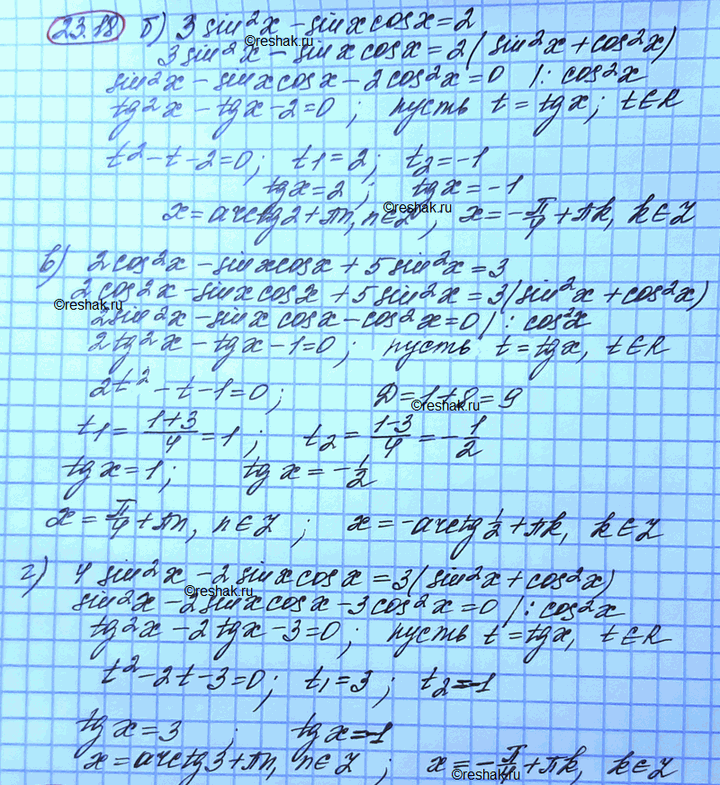 23.18 б) 3 sin²x - sinx cosx = 2
3 sin²x - sin x cosx = 2 ( sin²x + cos²x )
©reshak.ru
sin²x - sinx cosx - 2cos²x = 0 |: cos²x
tg²x - tgx - 2 = 0 ; пусть t = tgx ; t∈R
t² - t - 2 = 0 ; t1 = 2 ; t2 = -1
tgx = 2 ; tgx = -1
x = arctg2 + πn, n∈Z ; x = -π/4 + πk, k∈Z
©reshak.ru
в) 2cos²x - sinxcosx + 5sin²x = 3
2cos²x - sinx cosx + 5sin²x = 3(sin²x + cos²x)
©reshak.ru
2sin²x - sinx cosx - cos²x = 0 |: cos²x
2tg²x - tgx - 1 = 0 ; пусть t = tgx, t∈R
2t² - t - 1 = 0 ; D = 1 + 8 = 9
©reshak.ru
t1 = (1+3)/4 = 1 ; t2 = (1-3)/4 = -1/2
tgx = 1 ; tgx = -1/2
x = π/4 + πn, n∈Z ; x = -arctg 1/2 + πk, k∈Z
г) 4 sin²x - 2 sinx cosx = 3 ( sin²x + cos²x )
©reshak.ru
sin²x - 2sinx cosx - 3cos²x = 0 |: cos²x
tg²x - 2tgx - 3 = 0 ; пусть t = tgx, t∈R
t² - 2t - 3 = 0 ; t1 = 3 ; t2 = -1
tgx = 3 ; tgx = -1
x = arctg3 + πn, n∈Z ; x = -π/4 + πk, k∈Z
©reshak.ru